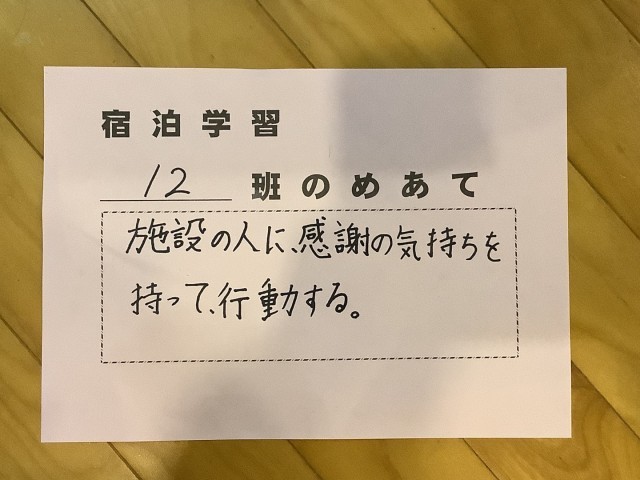 宿泊学習
12 班のめあて
施設の人に、感謝の気持ちを
持って、行動する。